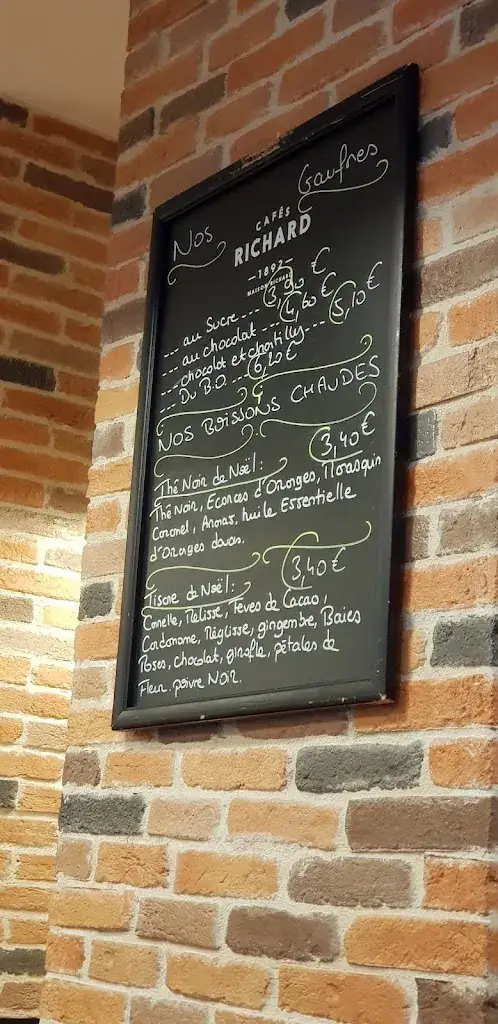 Nos Gaufres
CAFÉS
RICHARD
1892
MAISON RICHARD
--- au Sucre --- 3,90 €
--- au chocolat --- 4,60 €
--- chocolat et chantilly --- 5,10 €
--- Du B.O. --- 6,20 €
NOS BOISSONS CHAUDES
Thé Noir de Noël : 3,40 €
Thé Noir, Ecorces d'Oranges, Marasquin
Caramel, Ananas, huile Essentielle
d'Oranges douces.
Tisane de Noël : 3,40 €
Canelle, Mélisse, Feves de Cacao,
Cardamome, Réglisse, gingembre, Baies
Roses, chocolat, girofle, pétales de
Fleur. poivre Noir.